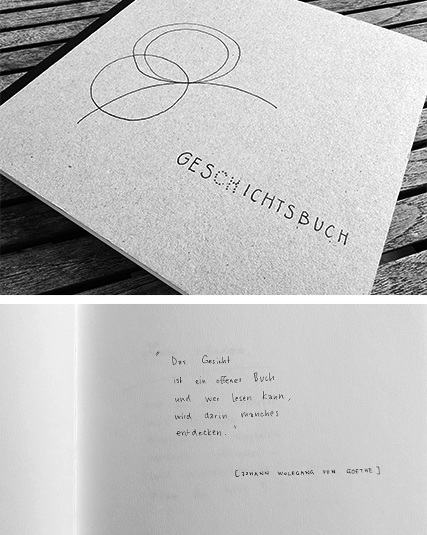 GESCHICHTSBUCH
"Das Gesicht
ist ein offenes Buch
und wer lesen kann,
wird darin manches
entdecken."
[JOHANN WOLFGANG VON GOETHE]